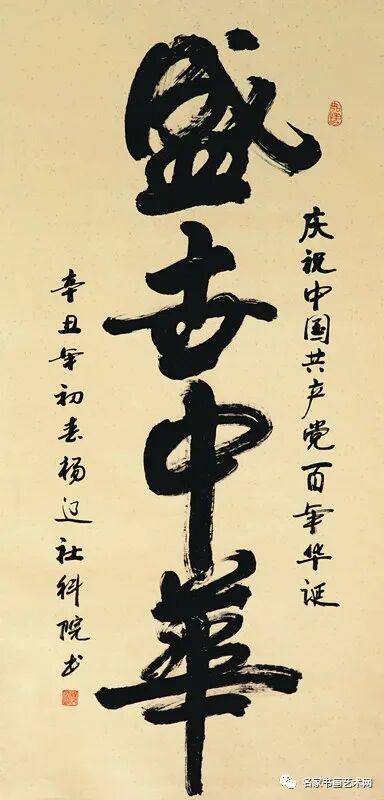 庆祝中国共产党百年华诞
盛世中華
辛丑年初春杨社科院书
名家书画艺术网